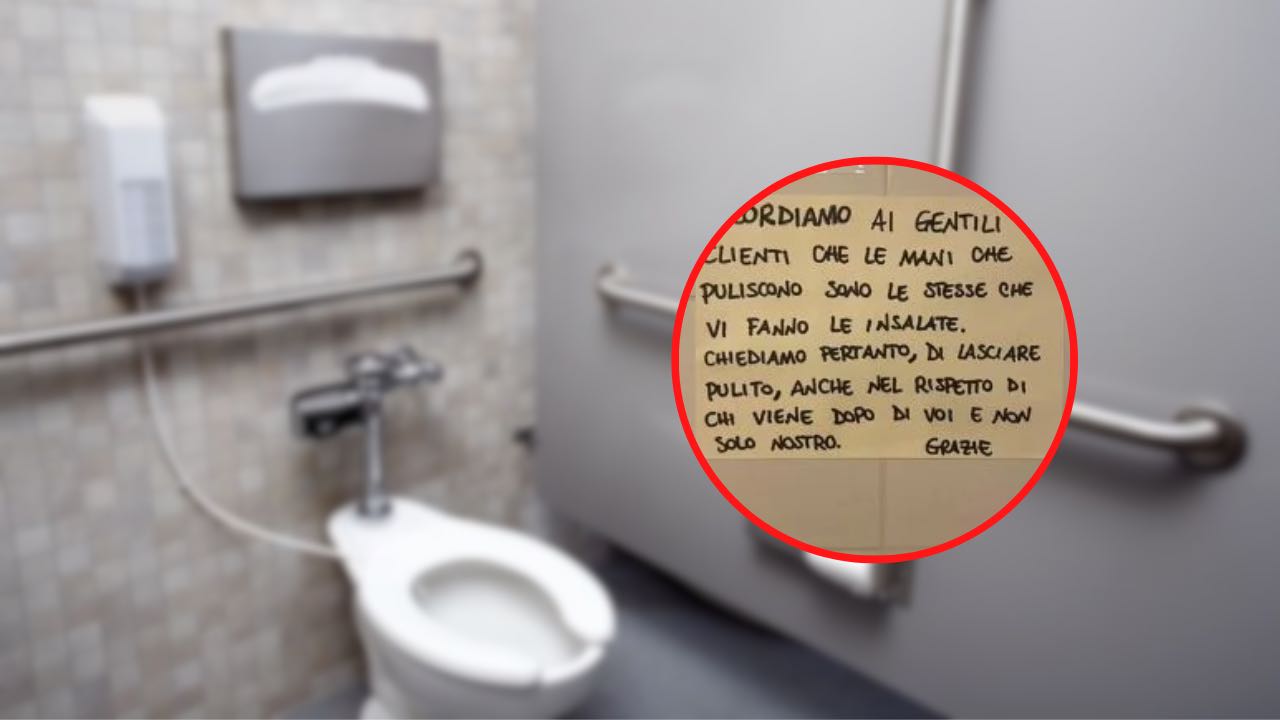 ORDIAMO AI GENTILI
CLIENTI CHE LE MANI CHE
PULISCONO SONO LE STESSE CHE
VI FANNO LE INSALATE.
CHIEDIAMO PERTANTO, DI LASCIARE
PULITO, ANCHE NEL RISPETTO DI
CHI VIENE DOPO DI VOI E NON
SOLO NOSTRO. GRAZIE